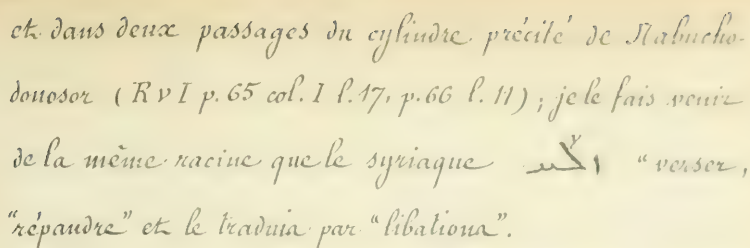 et dans deux passages du cylindre précité de Nabucho-
donosor (R v I p. 65 col. I l. 17, p. 66 l. 11) ; je le fais venir
de la même racine que le syriaque "verser,
"répandre" et le traduis par "libations".